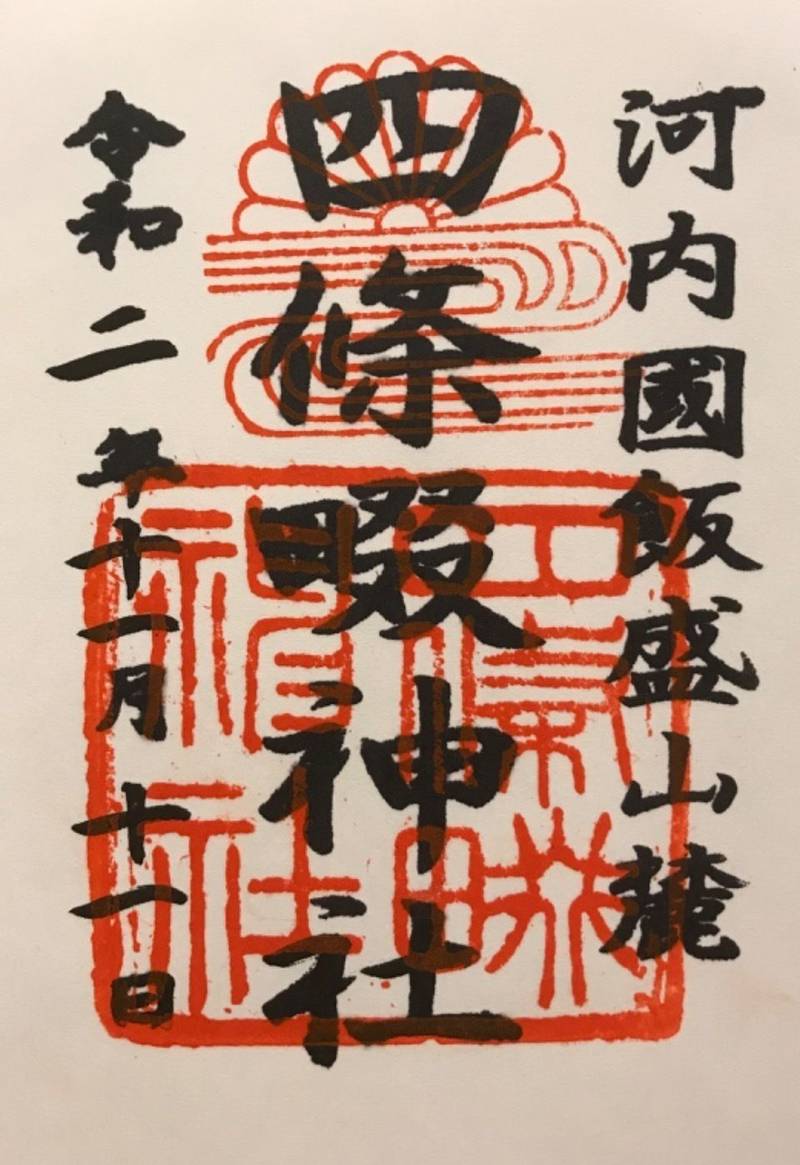 河内國飯盛山麓
四條畷神社
令和二年十一月十一日